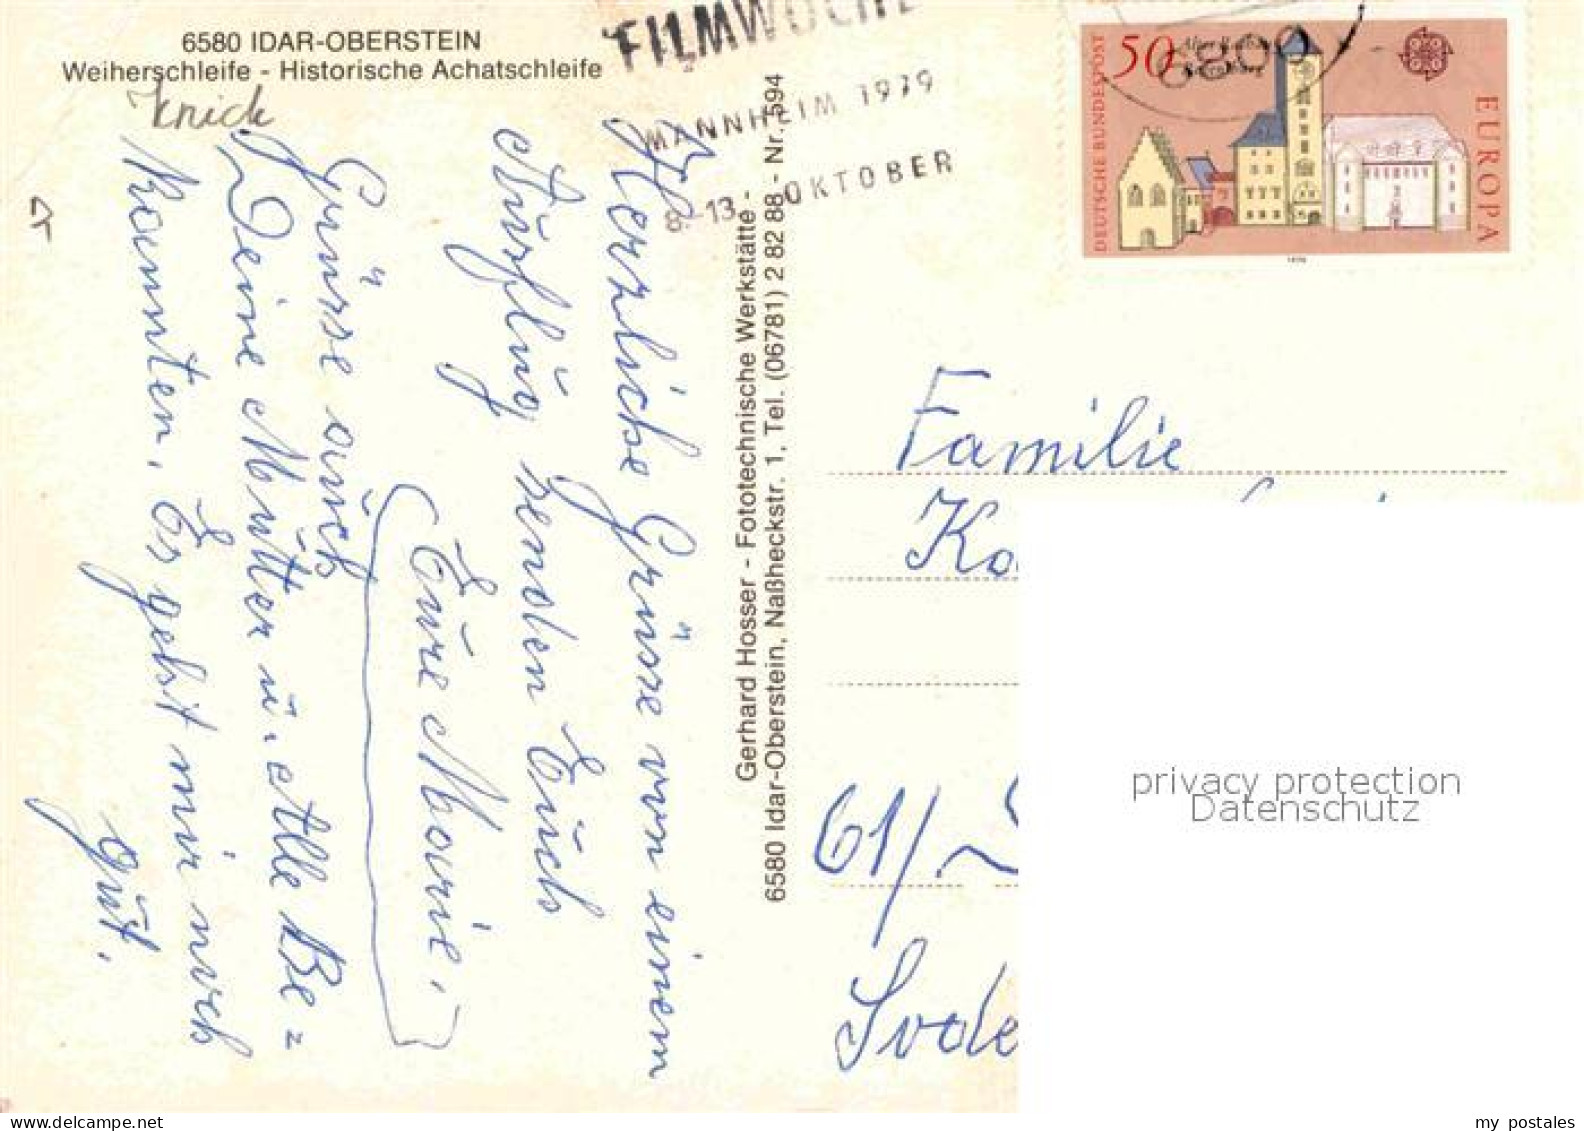 6580 IDAR-OBERSTEIN
Weiherschleife - Historische Achatschleife
Knick
FILMWOCHE
MANNHEIM 1979
8.-13. OKTOBER
DEUTSCHE BUNDESPOST
50
Altes Rathaus
EUROPA
1978
6800
Herzliche Grüsse von einem
Ausflug senden Euch
Eure Marie,
Grüsse auch
Deine Mutter u. Alle Be=
kannten. Es geht mir noch
gut.
Gerhard Hosser - Fototechnische Werkstätte -
6580 Idar-Oberstein, Naßheckstr. 1, Tel. (06781) 2 82 88 - Nr. 594
Familie
Ka
61/
Sode
privacy protection
Datenschutz
my postales